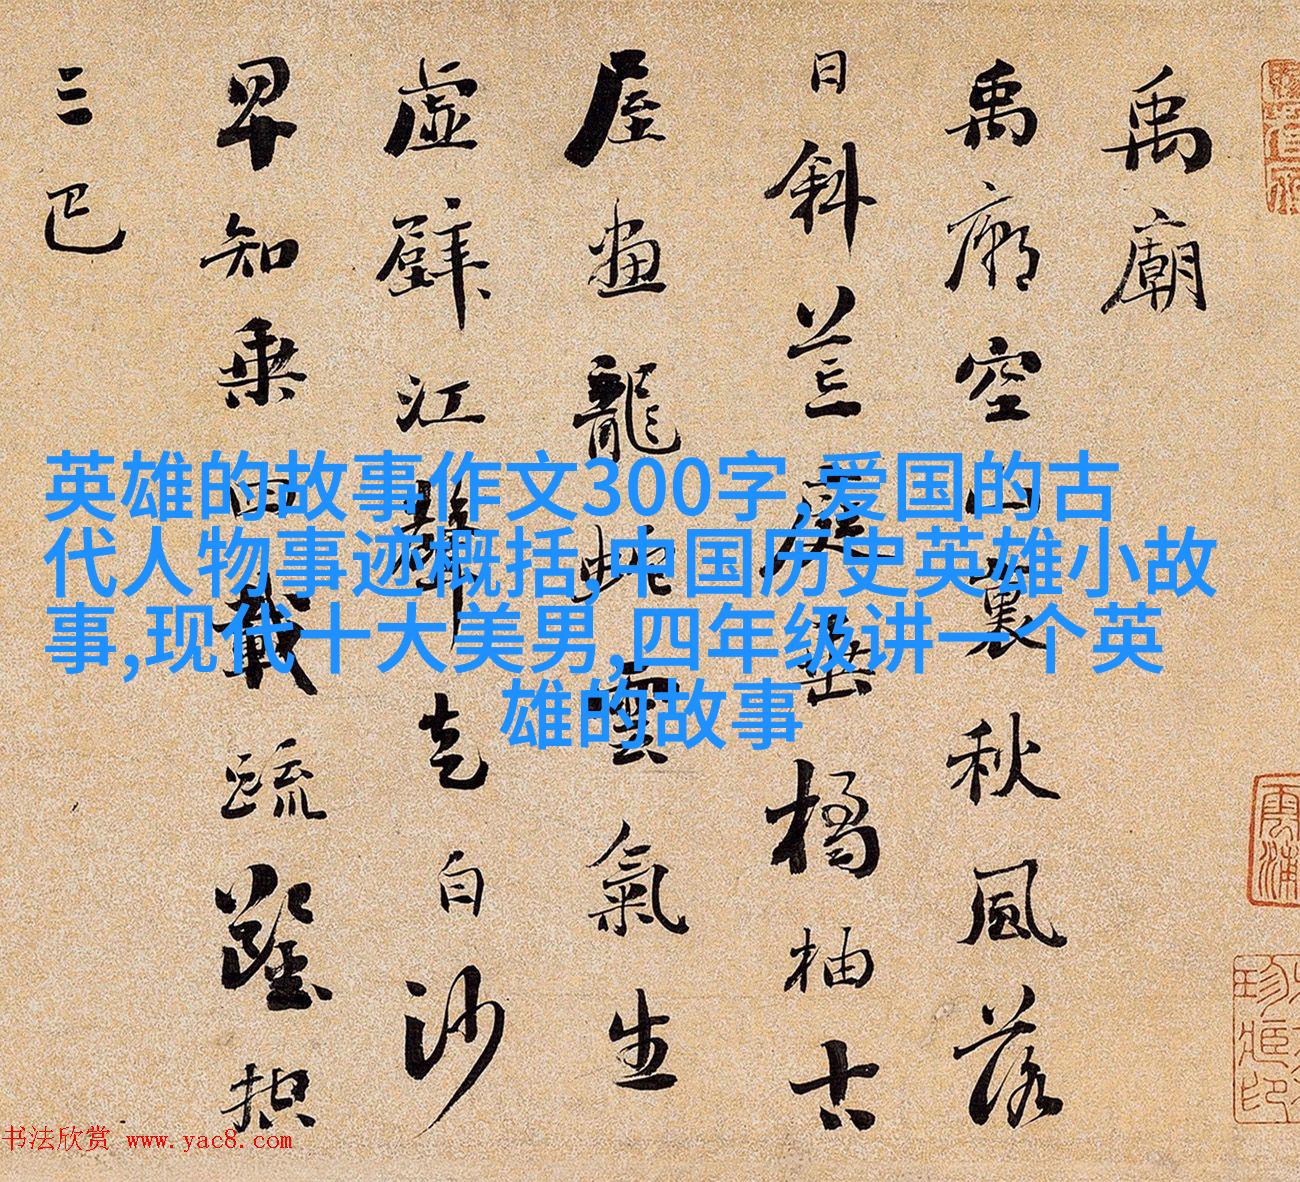 禹廟
禹廟空山裏秋風落
日斜荒庭垂橘柚古
屋畫龍虵雲氣生
虛壁江聲走白沙
早知乘四載疏鑿控
三巴
英雄的故事作文300字,爱国的古
代人物事迹概括,中国历史英雄小故
事,现代十大美男,四年级讲一个英
雄的故事
书法欣赏 www.yac8.com